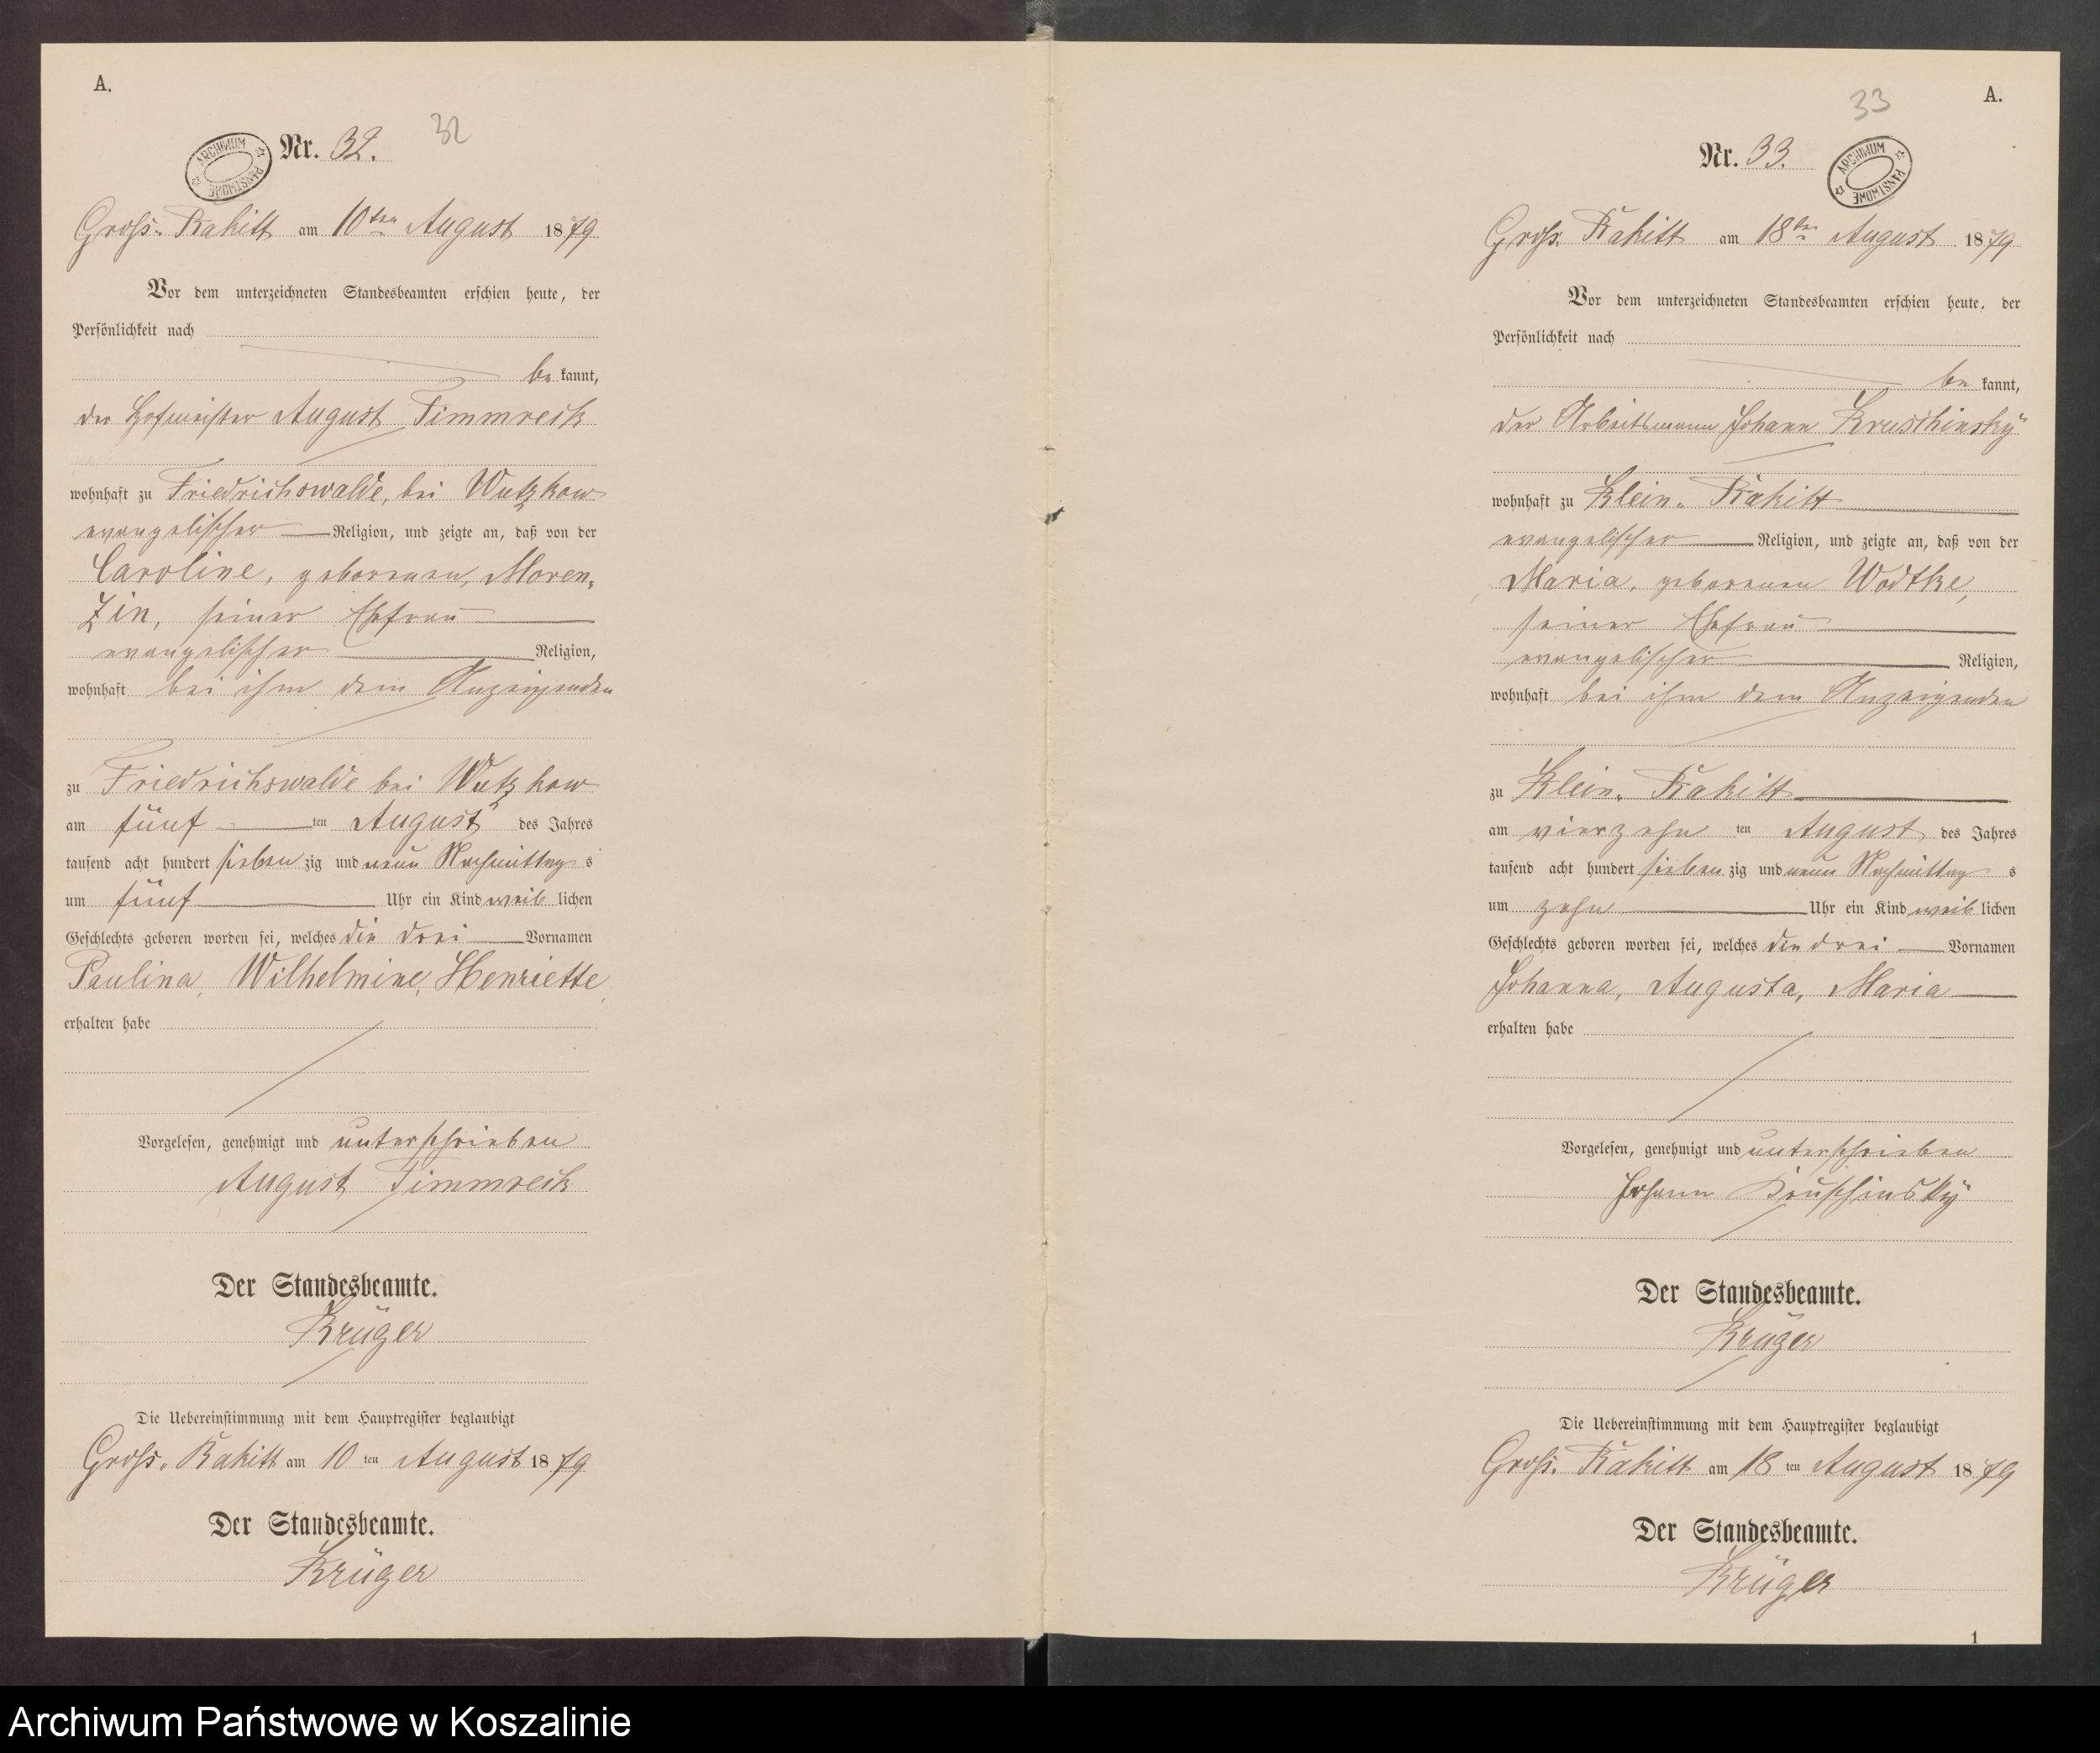 A.
Nr. 32.
32
ARCHIWUM PAŃSTWOWE
Gross-Rakitt am 10ten August 1879.
Vor dem unterzeichneten Standesbeamten erschien heute, der
Persönlichkeit nach
be kannt,
der Hofmeister August Timmreck
wohnhaft zu Friedrichswalde, bei Wutzkow
evangelischer Religion, und zeigte an, daß von der
Caroline, geborenen, Moren-
zin, seiner Ehefrau
evangelischer Religion,
wohnhaft bei ihm dem Anzeigenden
zu Friedrichswalde bei Wutzkow
am fünf ten August des Jahres
tausend acht hundert sieben zig und neun Nachmittag s
um fünf Uhr ein Kind weib lichen
Geschlechts geboren worden sei, welches die drei Vornamen
Paulina, Wilhelmine, Henriette,
erhalten habe
Vorgelesen, genehmigt und unterschrieben
August Timmreck
Der Standesbeamte.
Krüger
Die Uebereinstimmung mit dem Hauptregister beglaubigt
Gross-Rakitt am 10 ten August 1879
Der Standesbeamte.
Krüger
33
A.
Nr. 33.
ARCHIWUM PAŃSTWOWE
Gross-Rakitt am 18ten August 1879
Vor dem unterzeichneten Standesbeamten erschien heute, der
Persönlichkeit nach
be kannt,
der Arbeitsmann Johann Kruschinsky
wohnhaft zu Klein-Rakitt
evangelischer Religion, und zeigte an, daß von der
Maria, geborenen Wodtke,
seiner Ehefrau
evangelischer Religion,
wohnhaft bei ihm dem Anzeigenden
zu Klein-Rakitt
am vierzehn ten August des Jahres
tausend acht hundert sieben zig und neun Nachmittag s
um zehn Uhr ein Kind weib lichen
Geschlechts geboren worden sei, welches die drei Vornamen
Johanna, Augusta, Maria
erhalten habe
Vorgelesen, genehmigt und unterschrieben
Johann Kruschinsky
Der Standesbeamte.
Krüger
Die Uebereinstimmung mit dem Hauptregister beglaubigt
Gross-Rakitt am 18 ten August 1879
Der Standesbeamte.
Krüger
1
Archiwum Państwowe w Koszalinie